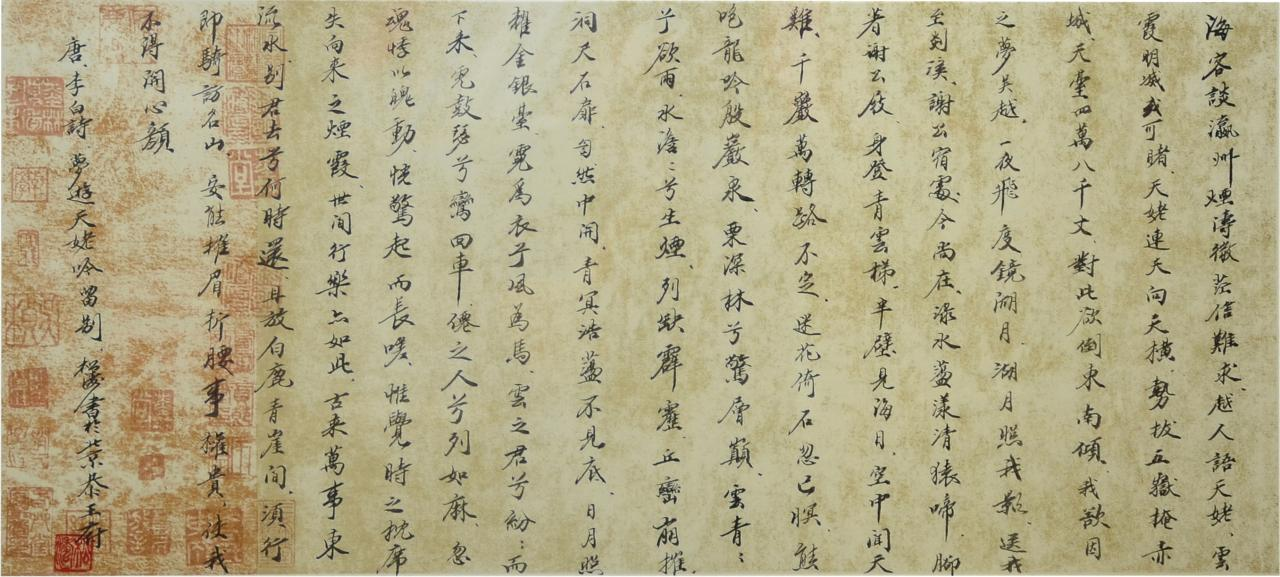 海客談瀛州煙濤微茫信難求越人語天姥雲
霞明滅或可睹天姥連天向天横勢拔五嶽掩赤
城天臺四萬八千丈對此欲倒東南傾我欲因
之夢吴越一夜飛度鏡湖月湖月照我影送我
至剡溪謝公宿處今尚在淥水蕩漾清猿啼腳
著謝公屐身登青雲梯半壁見海日空中聞天
雞千巖萬轉路不定迷花倚石忽已暝熊
咆龍吟殷巖泉栗深林兮驚層巔雲青〻
兮欲雨水澹〻兮生煙列缺霹靂丘巒崩摧
洞天石扉訇然中開青冥浩蕩不見底日月照
耀金銀臺霓爲衣兮風爲馬雲之君兮紛〻而
下來虎鼓瑟兮鸞回車僊之人兮列如麻忽
魂悸以魄動怳驚起而長嗟惟覺時之枕席
失向来之煙霞世间行樂亦如此古来萬事東
流水别君去兮何時還且放白鹿青崖间須行
即騎訪名山安能摧眉折腰事權貴使我
不得開心顔
唐李白詩夢遊天姥吟留别書於京恭王府